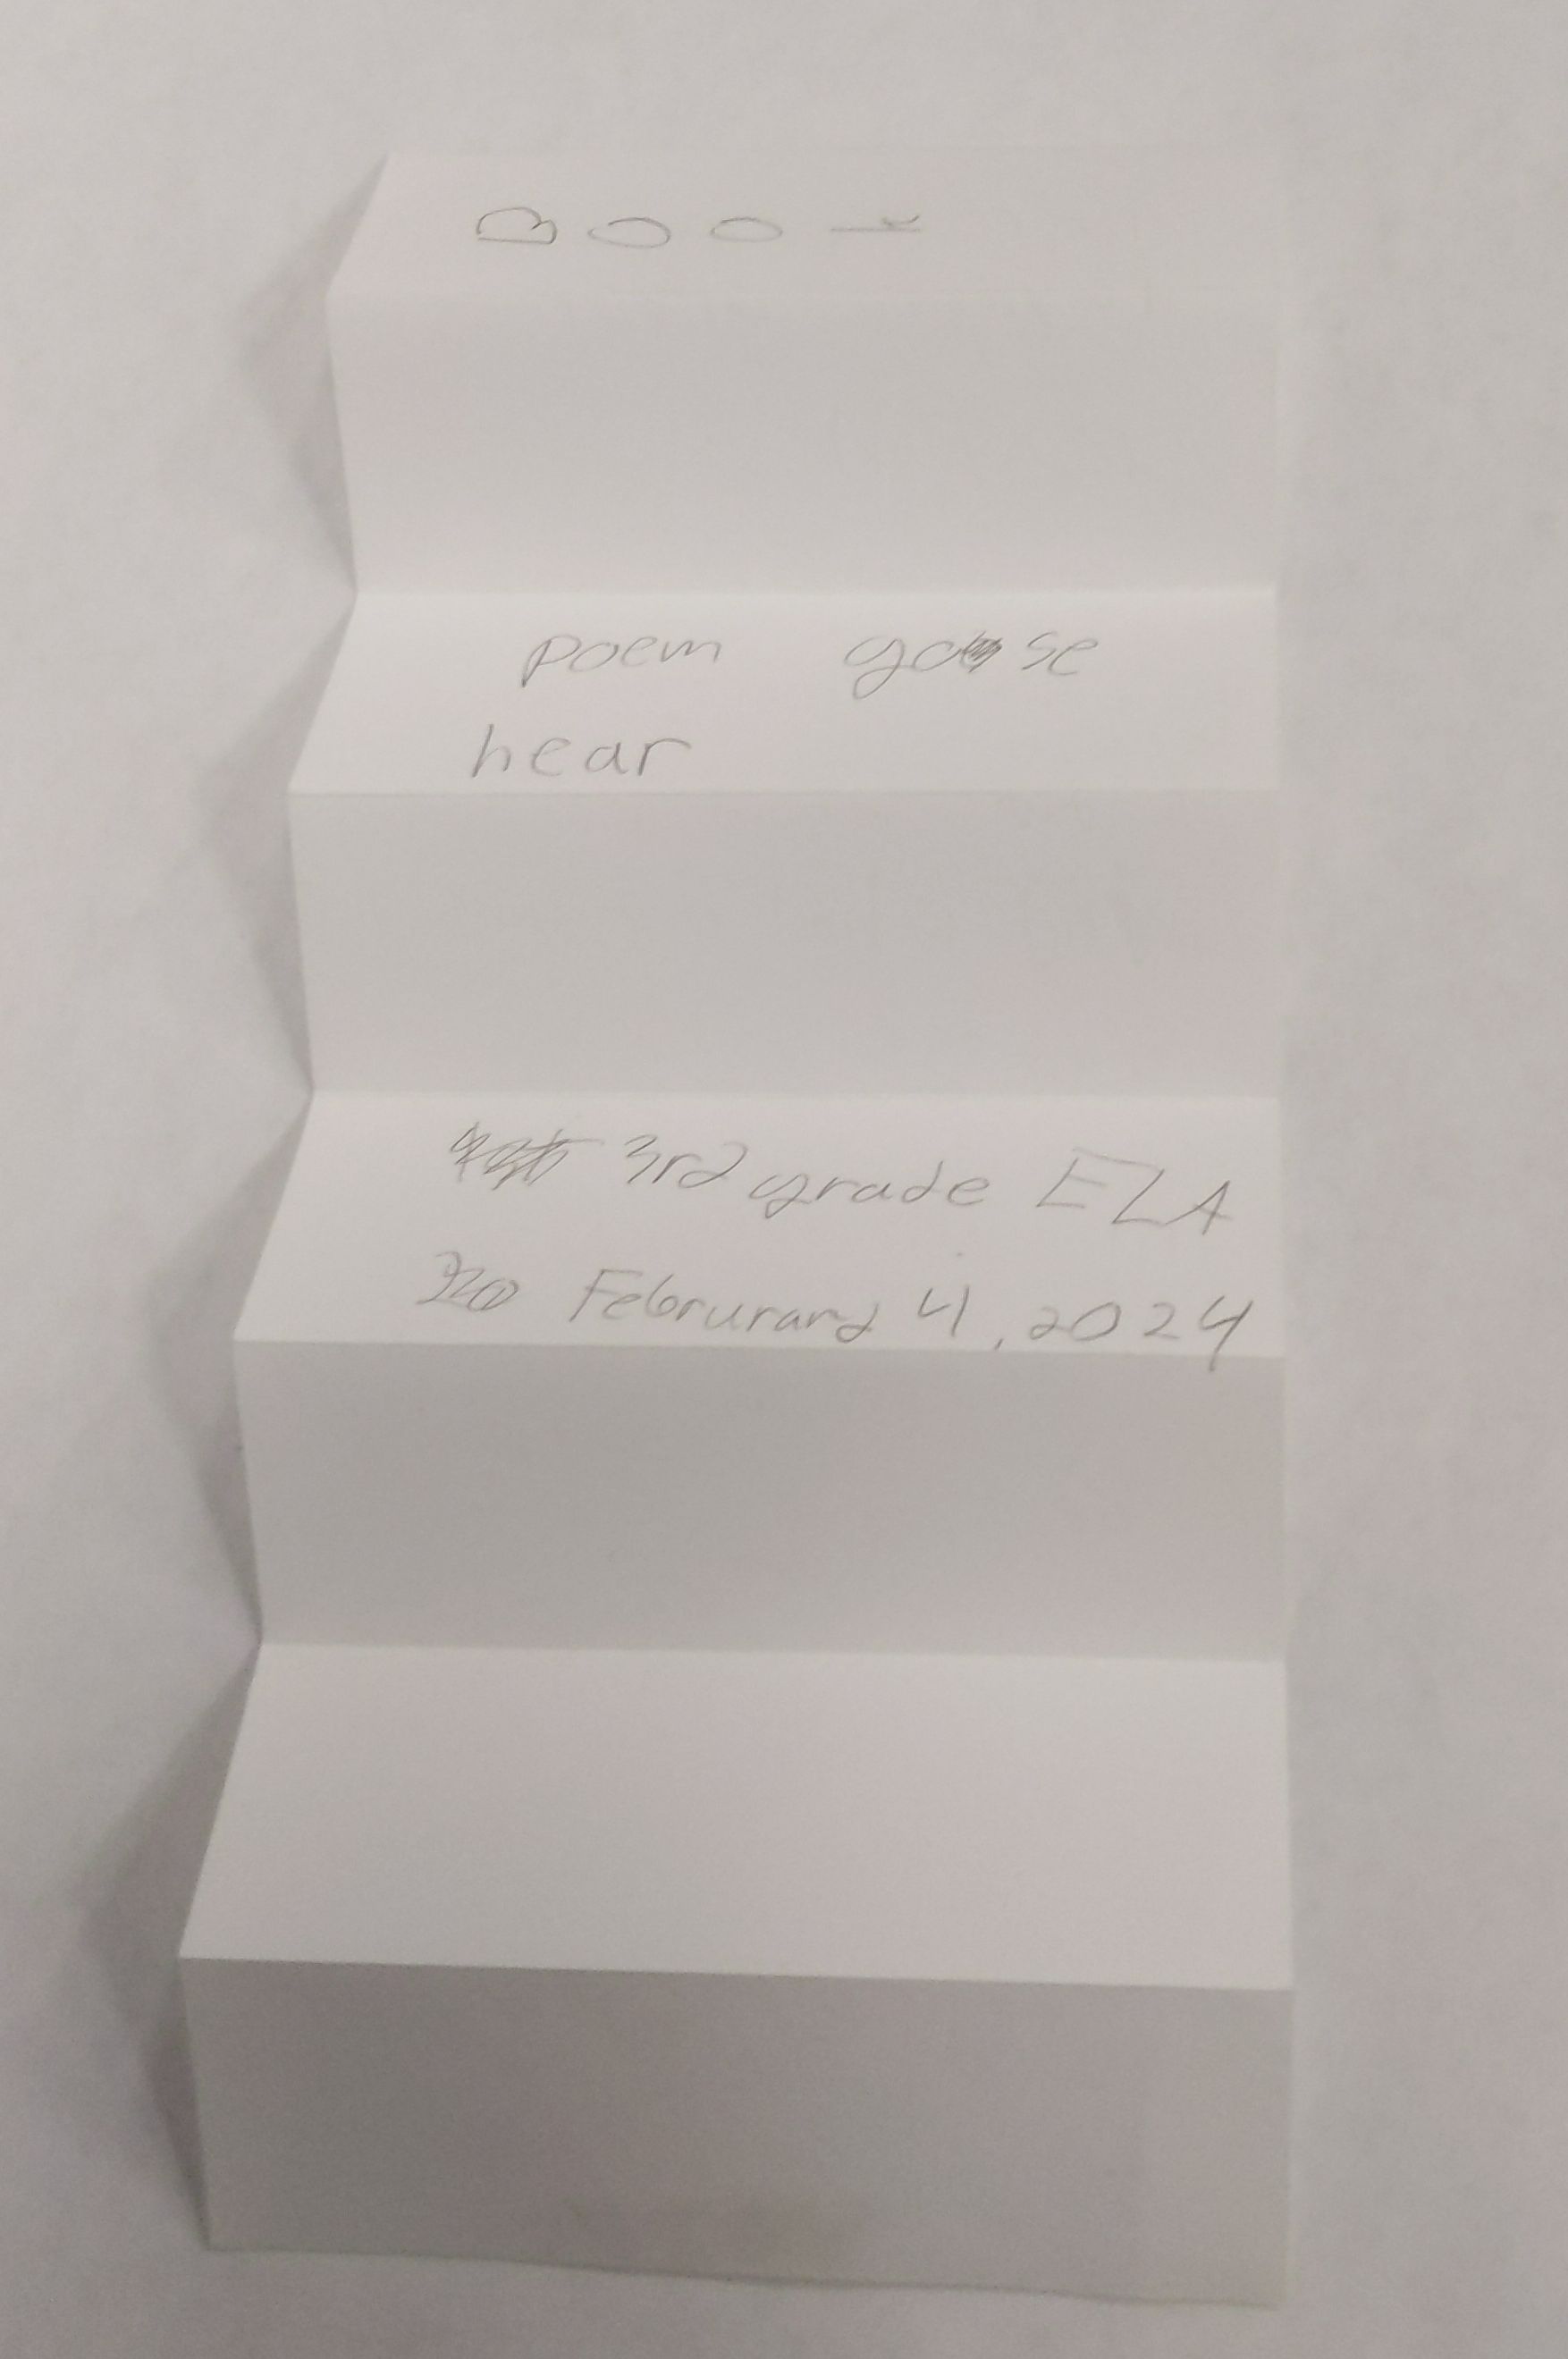 Book
poem goose
hear
3rd grade ELA
Februrary 4, 2024